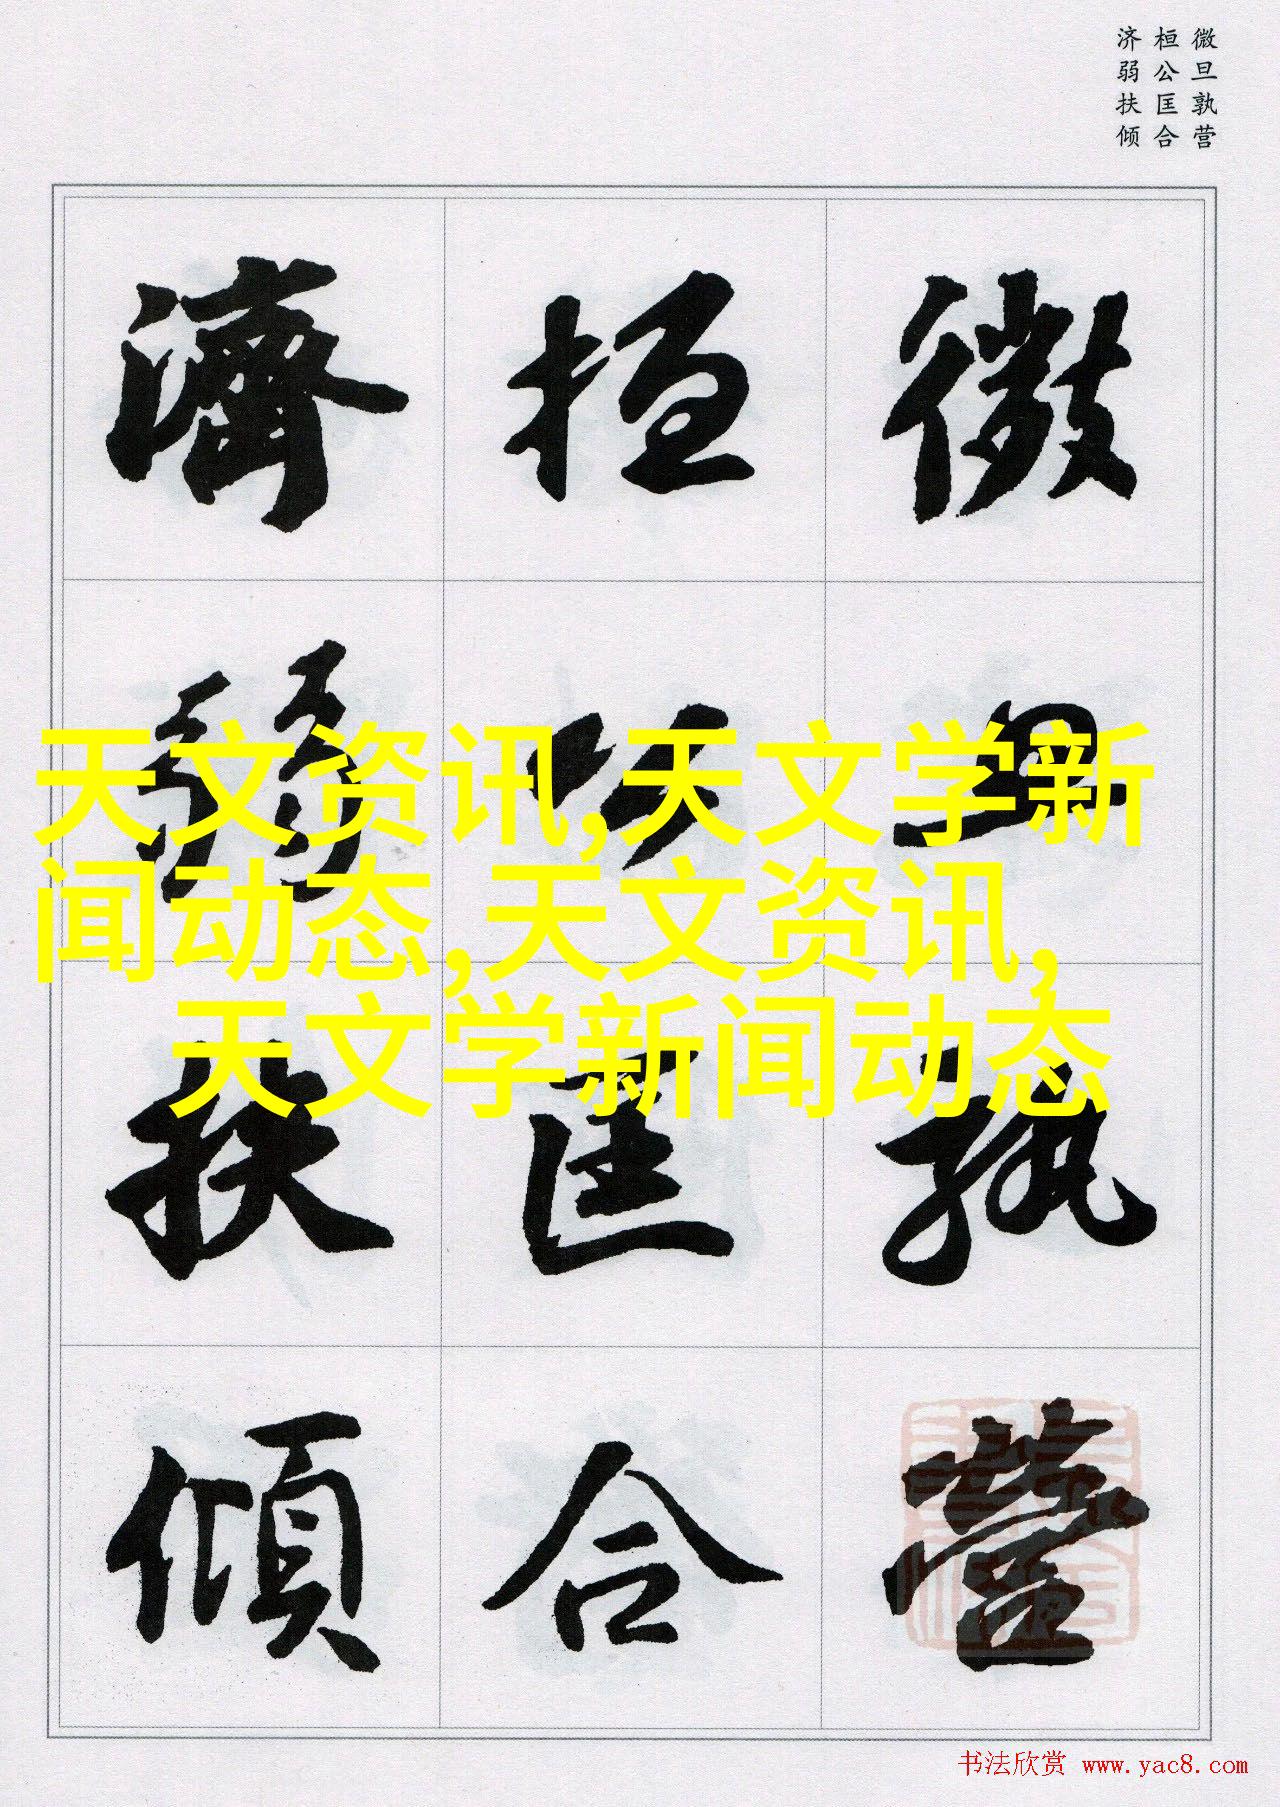 微旦孰营
桓公匡合
济弱扶倾
微旦孰營
桓公匡合
濟弱扶傾
天文资讯,天文学新
闻动态,天文资讯,
天文学新闻动态
书法欣赏 www.yac8.com